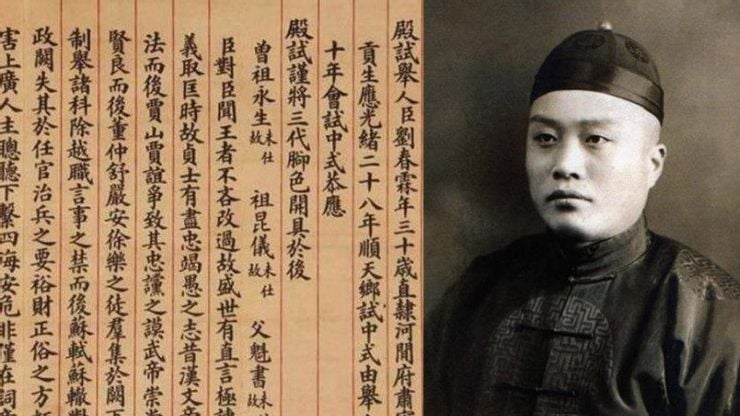 殿試舉人臣劉春霖年三十歲直隸河間府肅
貢生應光緒二十八年順天鄉試中式由舉
十年會試中式恭應
殿試謹將三代腳色開具於後
曾祖永生未仕故 祖昆儀未仕故 父魁書未仕
臣對臣聞王者不吝改過故盛世有直言極
義取匡時故貞士有盡忠竭愚之志昔漢文帝
法而後賈山賈誼爭致其忠讜之謨武帝崇
賢良而後董仲舒嚴安徐樂之徒羣集於闕下
制舉諸科除越職言事之禁而後蘇軾蘇轍
政闕失其於任官治兵之要裕財正俗之方
害上廣人主聰聽下繫四海安危非僅在詞